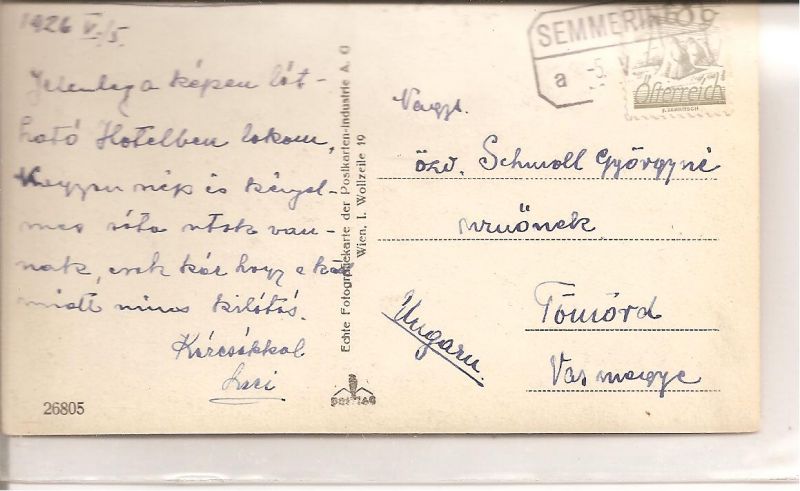 1926 V./5.
Jelenleg a képen lát-
ható Hotelben lakom,
nagyon szép és kényel-
mes séta utak van-
nak, csak kár hogy a köd
miatt nincs kilátás.
Kézcsókkal
26805
Echte Fotografiekarte der Postkarten-Industrie A. G
Wien, I. Wollzeile 19
SEMMERING
a
Österreich
Nagys.
özv. Schmoll Györgyné
urnőnek
Tömörd
Vas megye
Ungarn